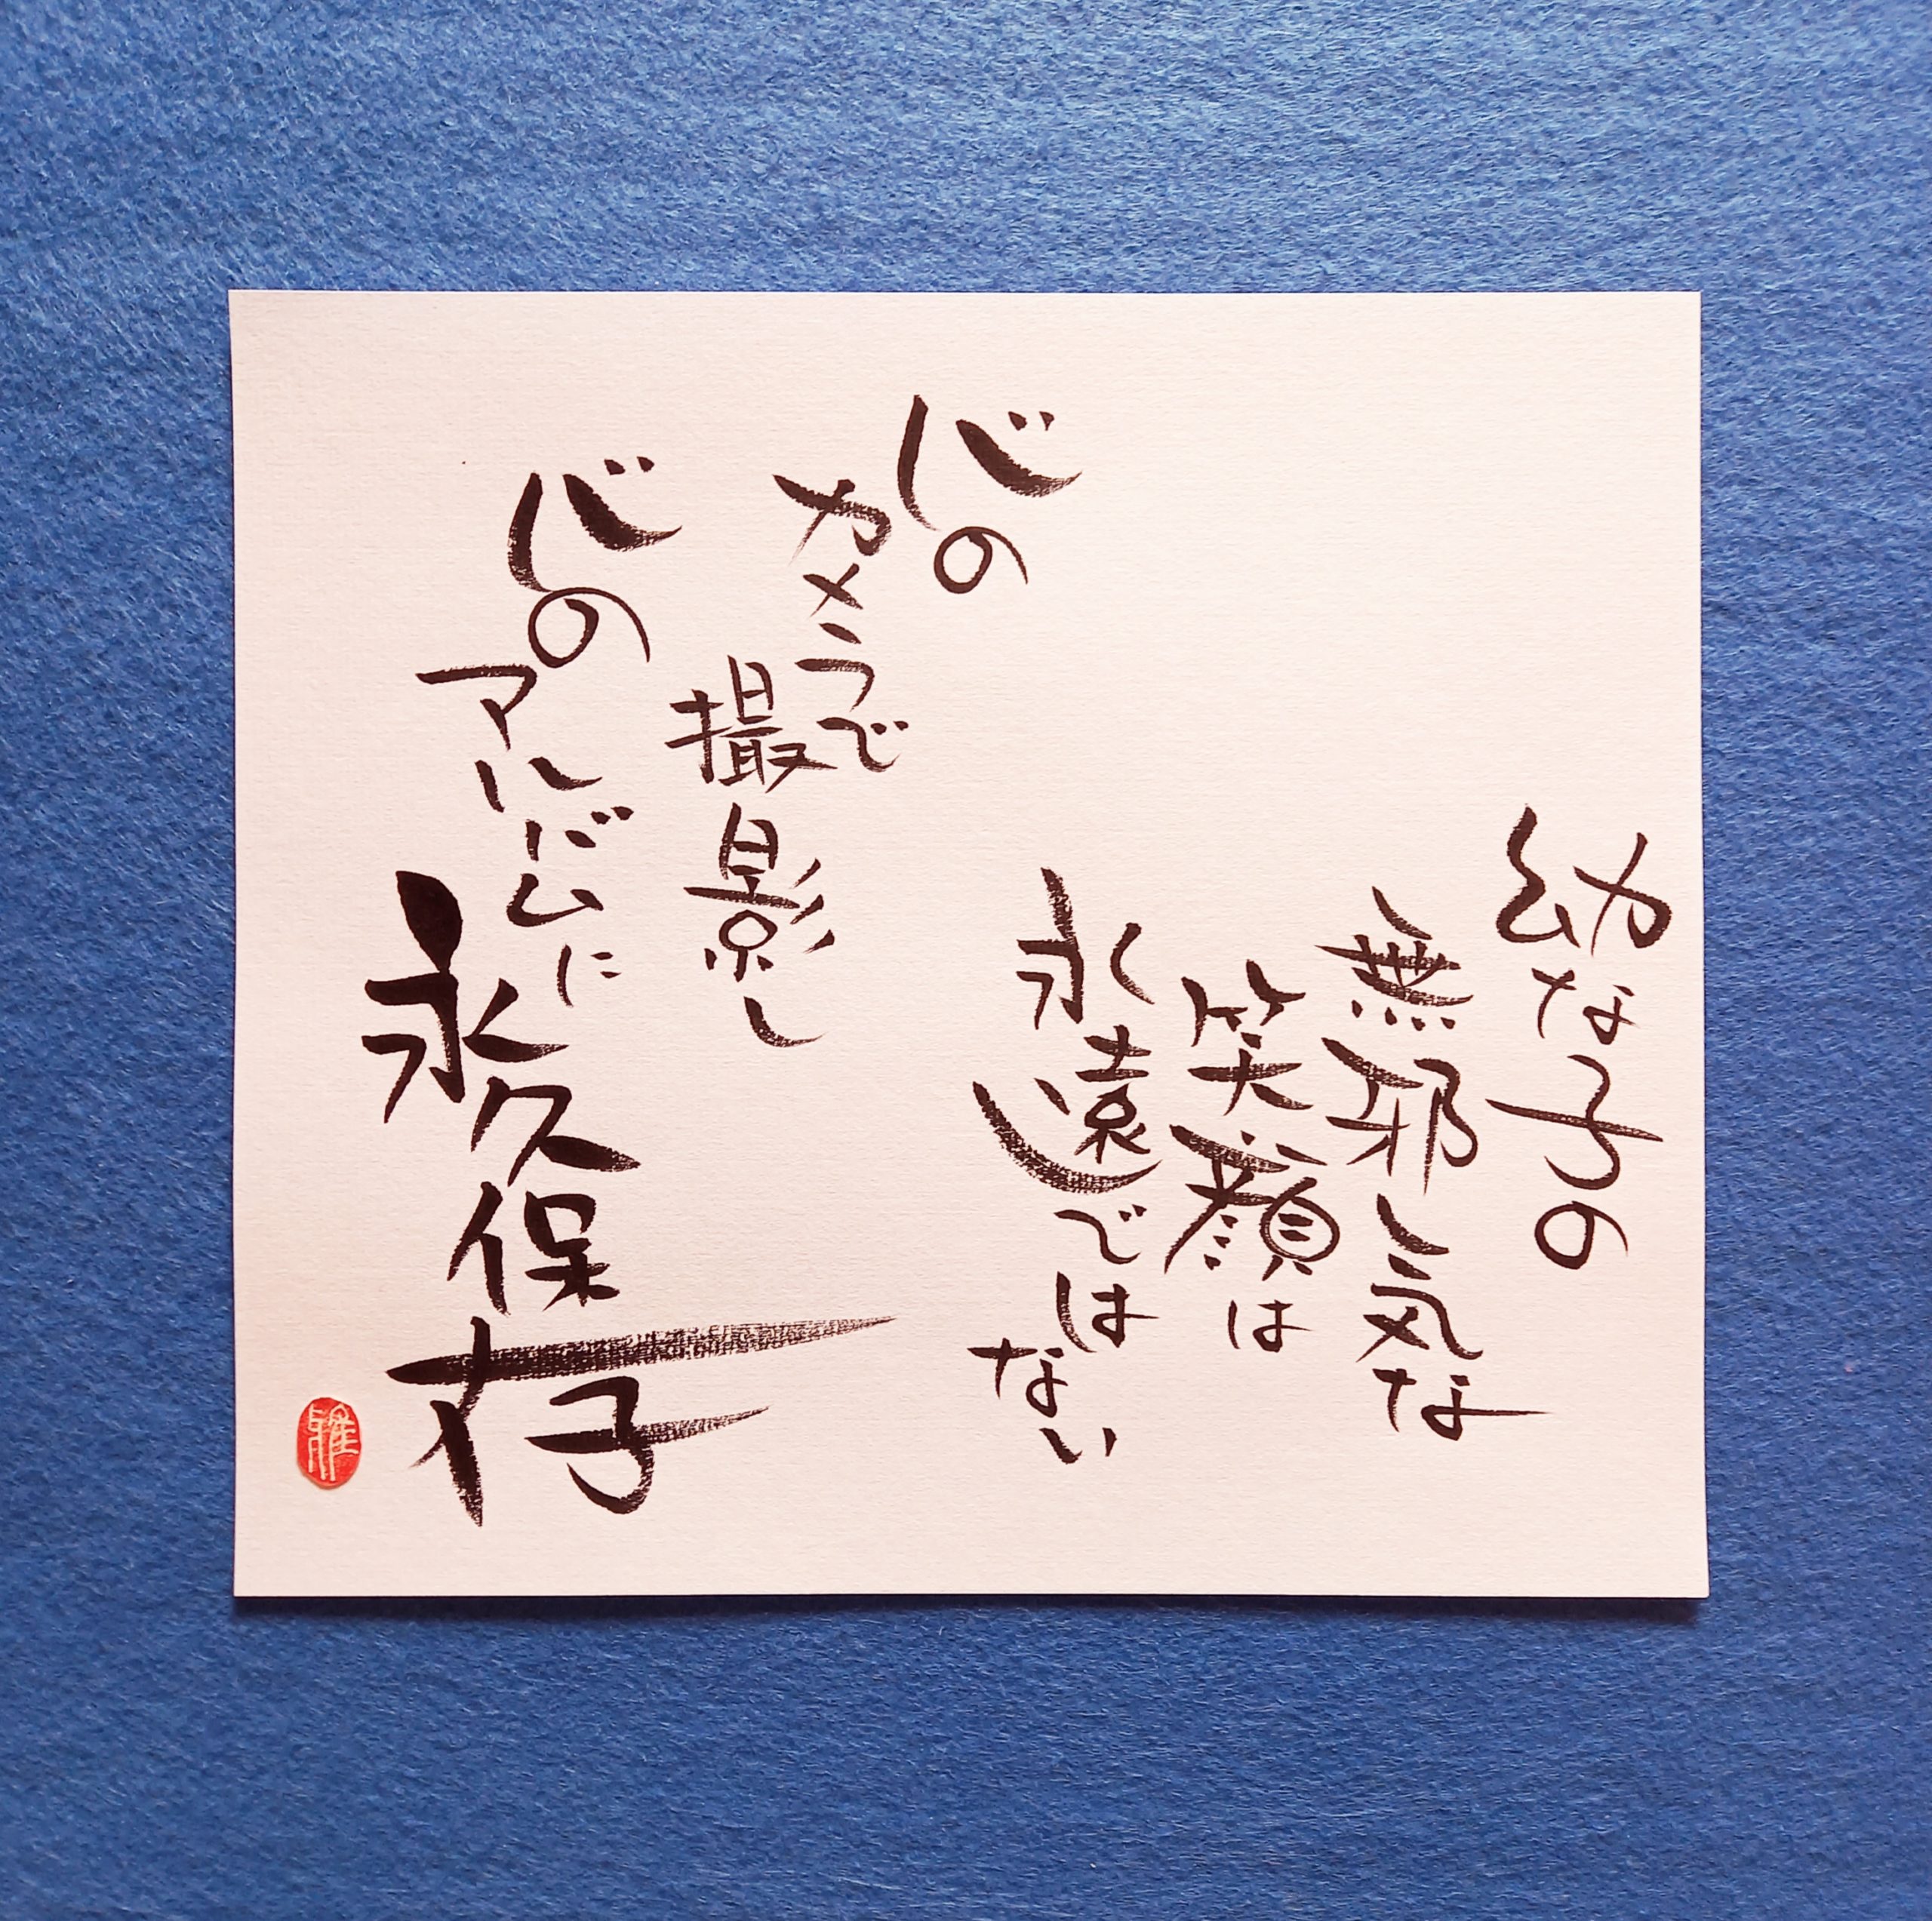 幼な子の
無邪気な
笑顔は
永遠では
ない
心の
カメラで
撮影し
心の
アルバムに
永久保存
雅